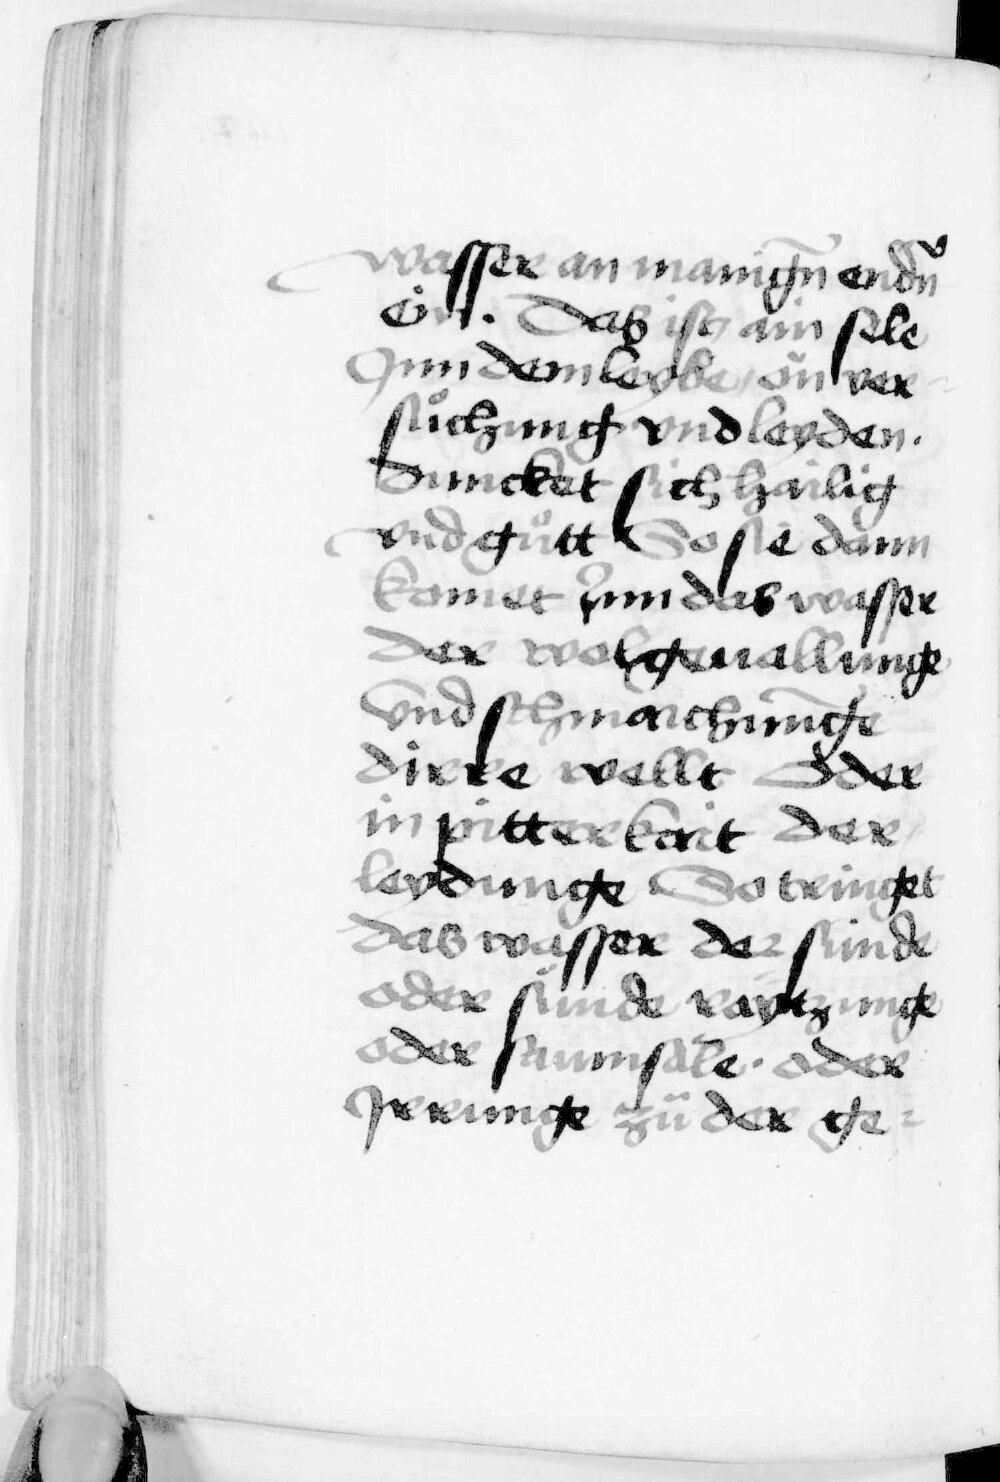 wasser an manigñ endñ
ein. Das ist ain sele
Inn dem leybe on ver-
sůchung vnd leyden.
duncket sich hailig
vnd gůtt So sie dann
komet Inn das wasser
der wolgeuallunge
vnd schmaichūnge
dirre wellt Oder
in pitterkait der
leydunge So tringet
das wasser der sünde
oder sünde raytzunge
oder saumsale. oder
Jrrunge zü der ge-